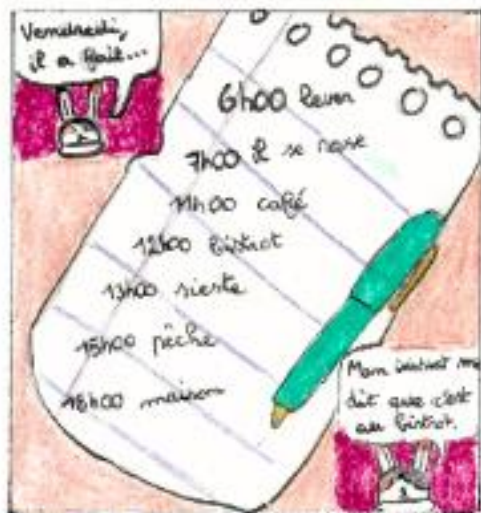 Vendredi,
il a fait...
6h00 lever
7h00 il se rase
11h00 café
12h00 bistrot
13h00 sieste
15h00 pêche
18h00 maison
Mon instinct me
dit que c'est
au bistrot.